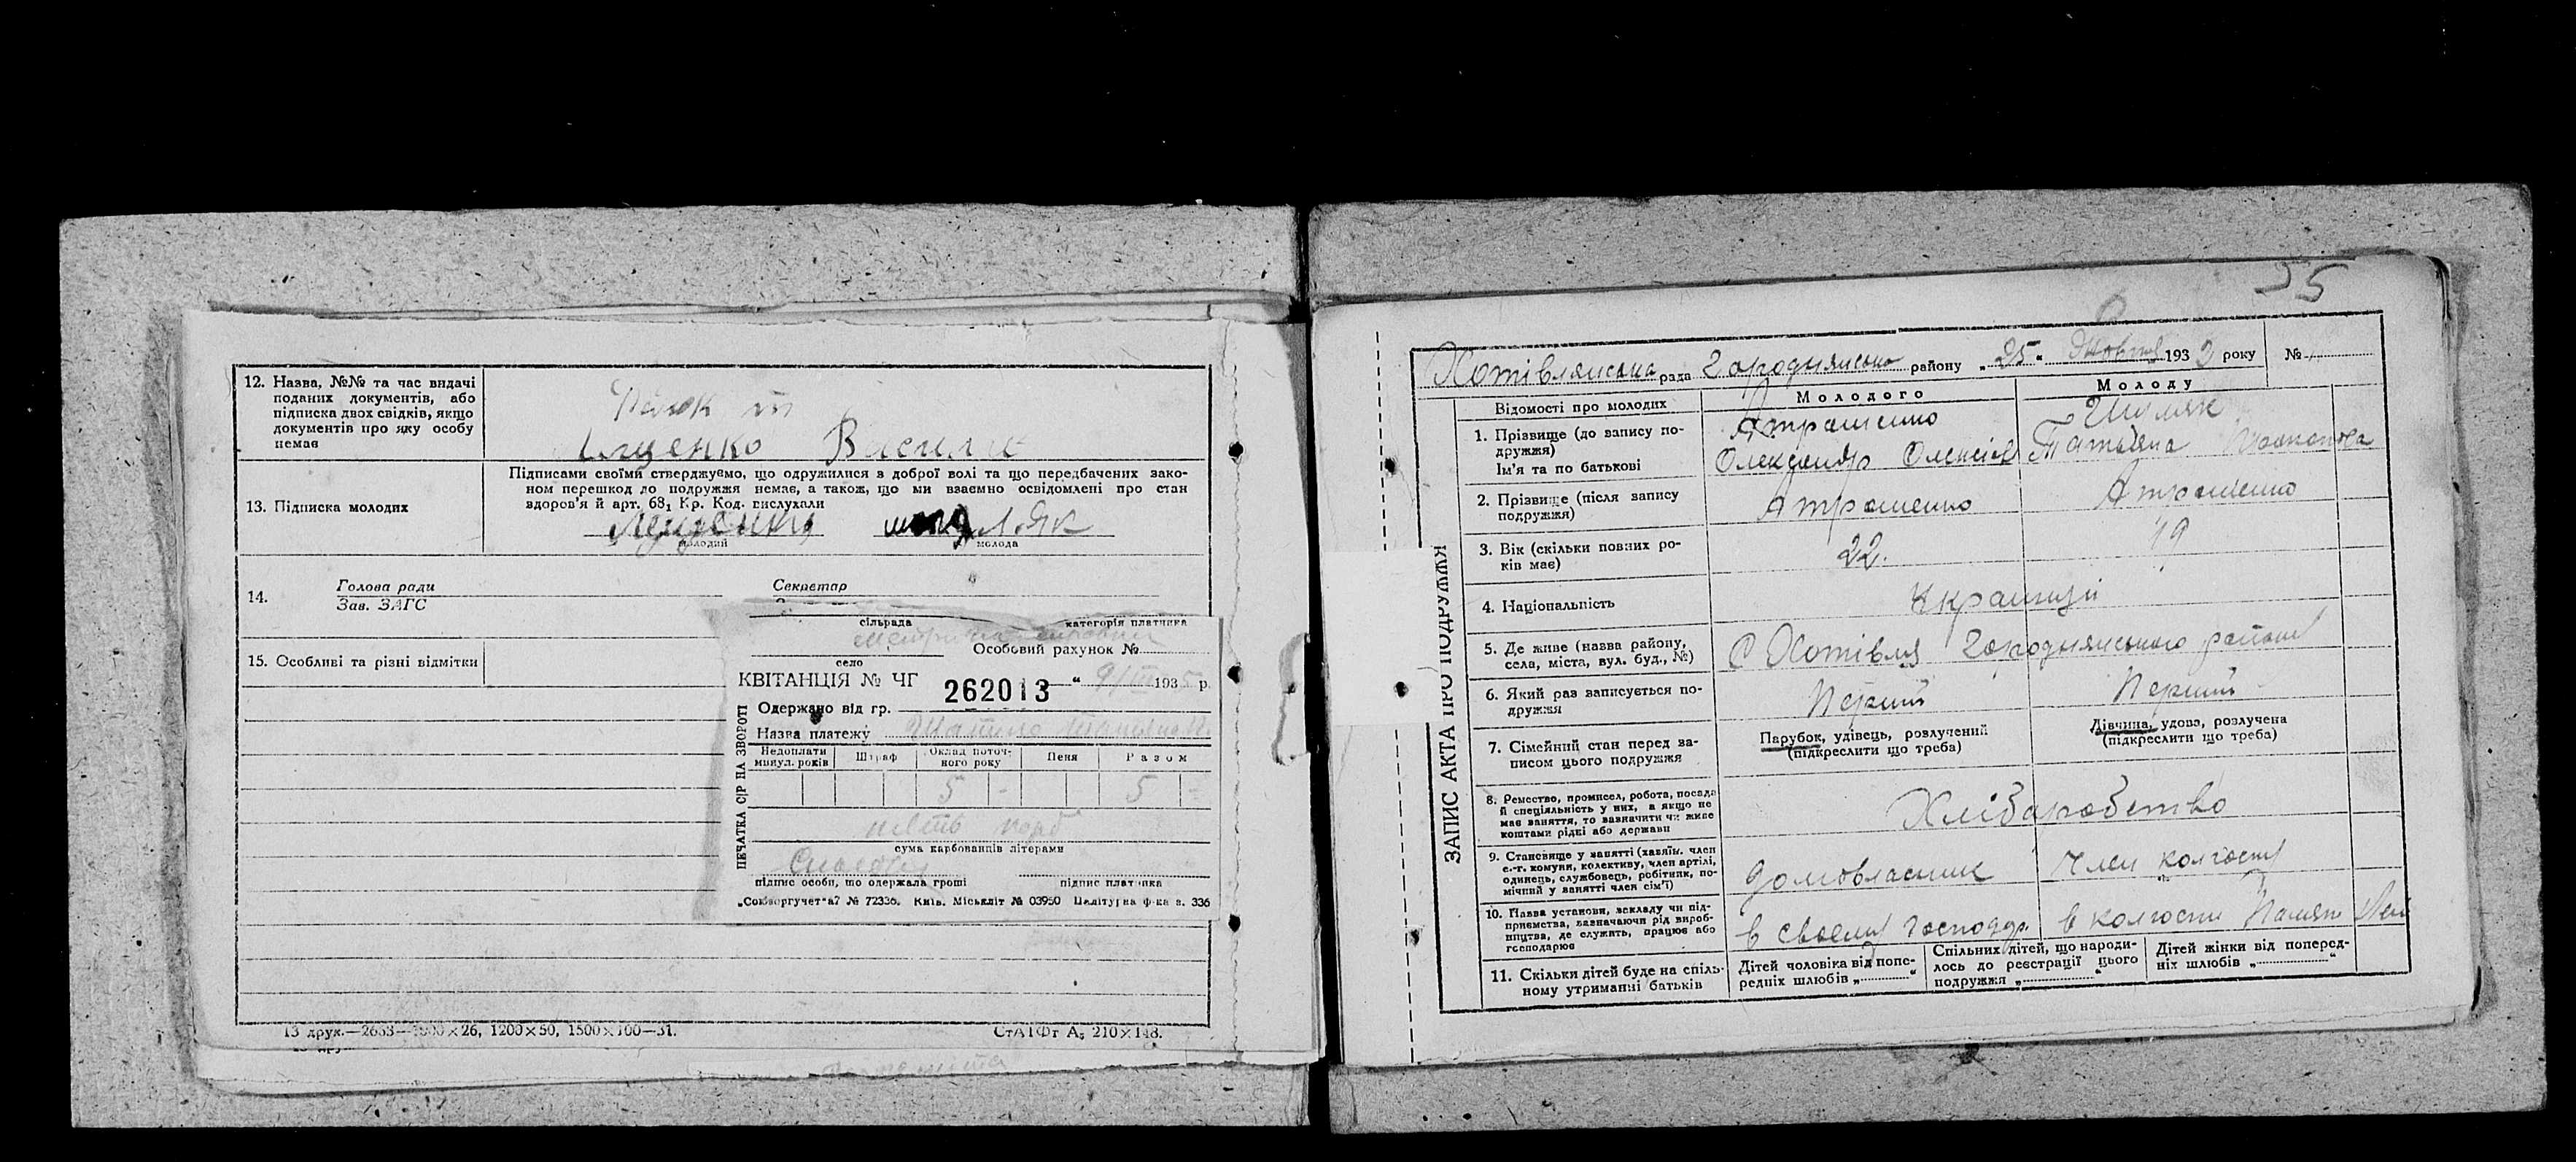 12. Назва, №№ та час видачі
поданих документів, або
підписка двох свідків, якщо
документів про яку особу
немає
Іщенко Василь
13. Підписка молодих
Підписами своїми стверджуємо, що одружилися з доброї волі та що передбачених зако-
ном перешкод до подружжя немає, а також, що ми взаємно освідомлені про стан
здоров'я й арт. 68₁ Кр. Код. вислухали
молодий
молода
14. Голова ради
Зав. ЗАГС
Секретар
15. Особливі та різні відмітки
сільрада
категорія платника
Особовий рахунок №
село
КВІТАНЦІЯ № ЧГ 262013 " 9/III 1935 р.
Одержано від гр.
Назва платежу
Недоплати минул. років
Штраф
Оклад поточ-
ного року
Пеня
Разом
5 - 5 -
сума карбованців літерами
підпис особи, що одержала гроші
підпис платника
ПЕЧАТКА С/Р НА ЗВОРОТІ
„Союзоргучет"а7 № 72336. Київ. Міськліт № 03950
13 друк.—2633—1500×26, 1200×50, 1500×100—31.
СтАТФт А₅ 210×148.
55
Хотівлянська рада Городнянсько району „25" Жовтня 1932 року №
ЗАПИС АКТА ПРО ПОДРУЖЖЯ
Відомості про молодих
Молодого
Молоду
1. Прізвище (до запису по-
дружжя)
Ім'я та по батькові
Атрошенко
Олександр Олексієв
Шумяк
Татьяна
2. Прізвище (після запису
подружжя)
Атрошенко
Атрошенко
3. Вік (скільки повних ро-
ків має)
22.
19
4. Національність
Українці
5. Де живе (назва району,
села, міста, вул. буд., №)
С Хотівля Городнянського району
6. Який раз записується по-
дружжя
Перший
Перший
7. Сімейний стан перед за-
писом цього подружжя
Парубок, удівець, розлучений
(підкреслити що треба)
Дівчина, удова, розлучена
(підкреслити що треба)
8. Ремество, промисел, робота, посада
й спеціяльність у них, а якщо не
має заняття, то зазначити чи живе
коштами рідні або держави
Хліборобство
9. Становище у занятті (хазяїн, член
с.-г. комуни, колективу, член артілі,
одинець, службовець, робітник, по-
мічний у занятті член сім'ї)
домовласник
Член колгоспу
10. Назва установи, закладу чи під-
приємства, зазначаючи рід вироб-
ництва, де служить, працює або
господарює
в своєму господар.
в колгоспі Памят Лен
11. Скільки дітей буде на спіль-
ному утриманні батьків
Дітей чоловіка від попе-
редніх шлюбів „ "
Спільних дітей, що народи-
лось до реєстрації цього
подружжя „ "
Дітей жінки від поперед-
ніх шлюбів „ "